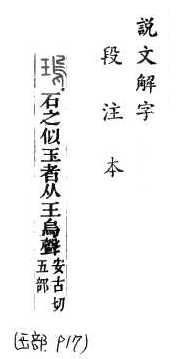 說文解字
段注本
瑦 石之似玉者从王烏聲 安古切
五部
(玉部 P17)